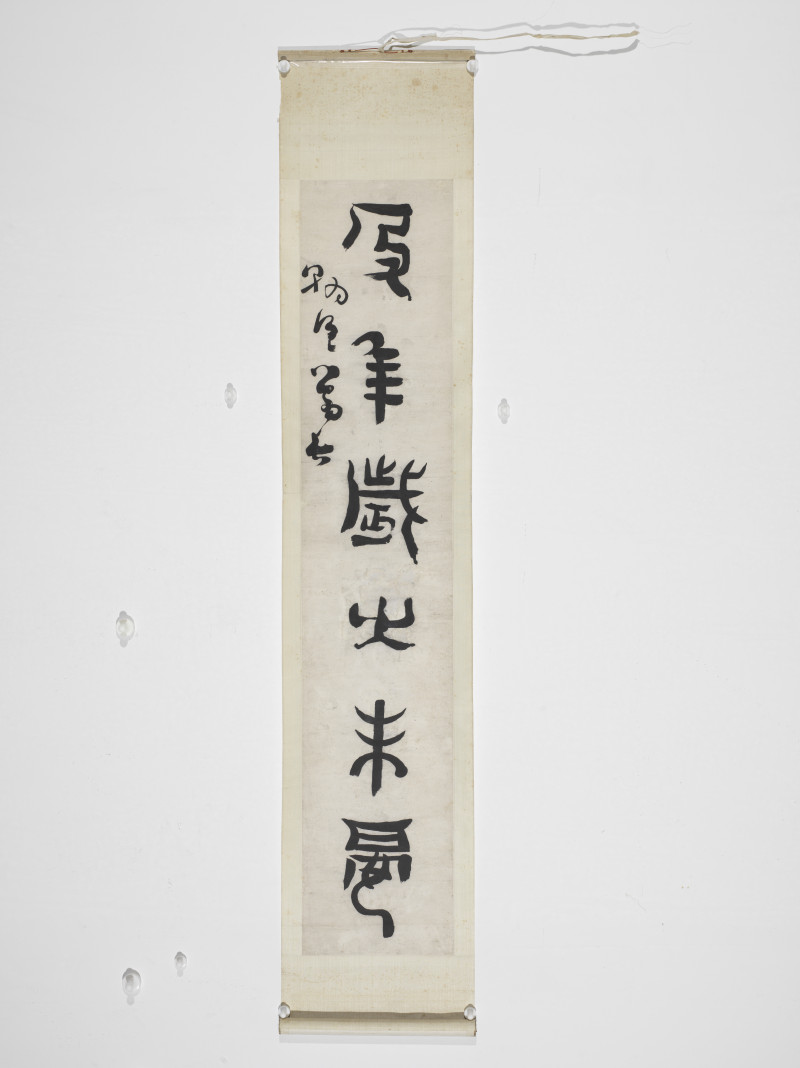 及年歲之未晏